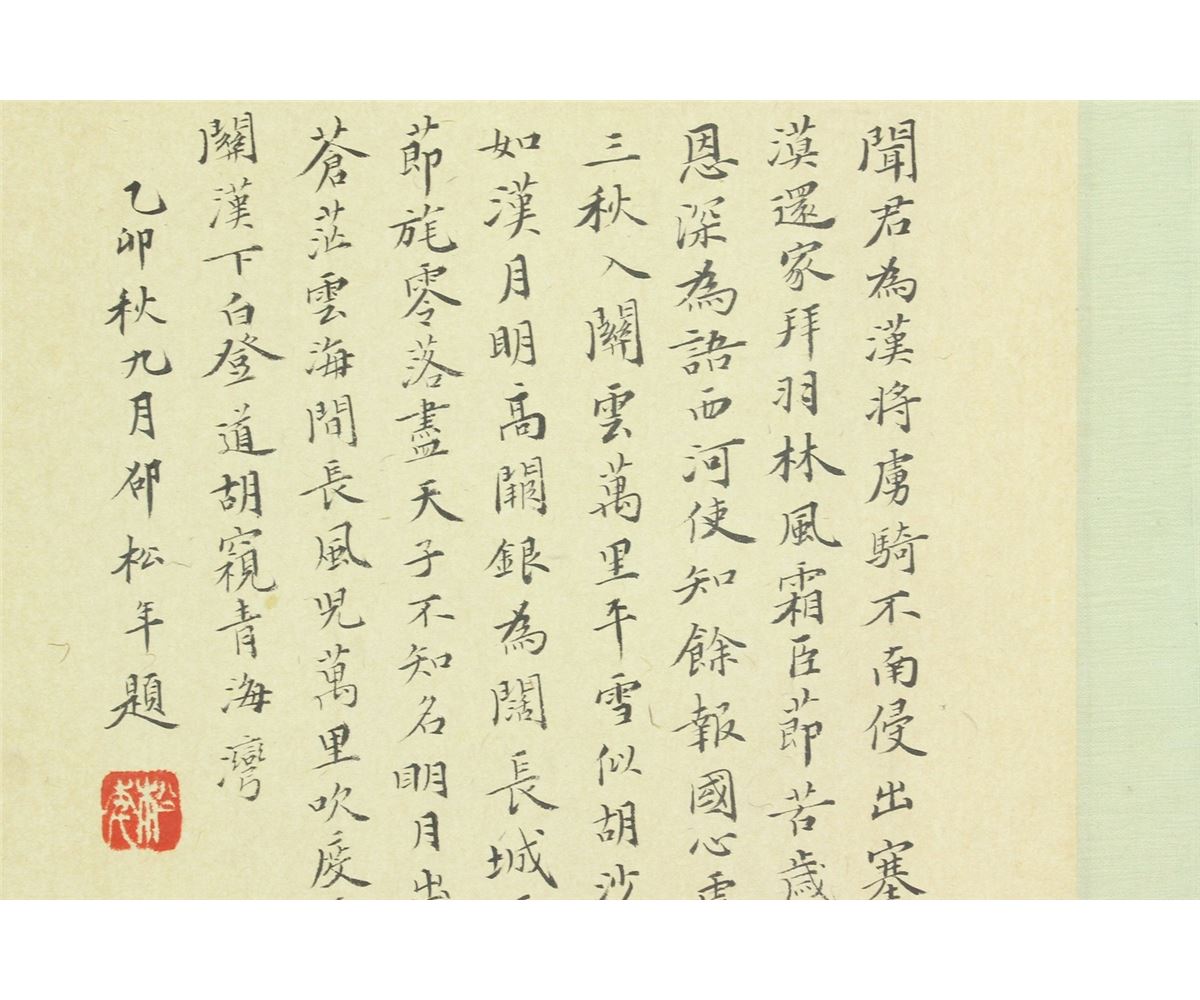 聞君為漢將虜騎不南侵出塞
漠還家拜羽林風霜臣節苦歲
恩深為語西河使知餘報國心
三秋入關雲萬里平雪似胡沙
如漢月明高闕銀為闕長城
節旄零落盡天子不知名明月出
蒼茫雲海間長風兒萬里吹度
關漢下白登道胡窺青海灣
乙卯秋九月邵松年題
松年